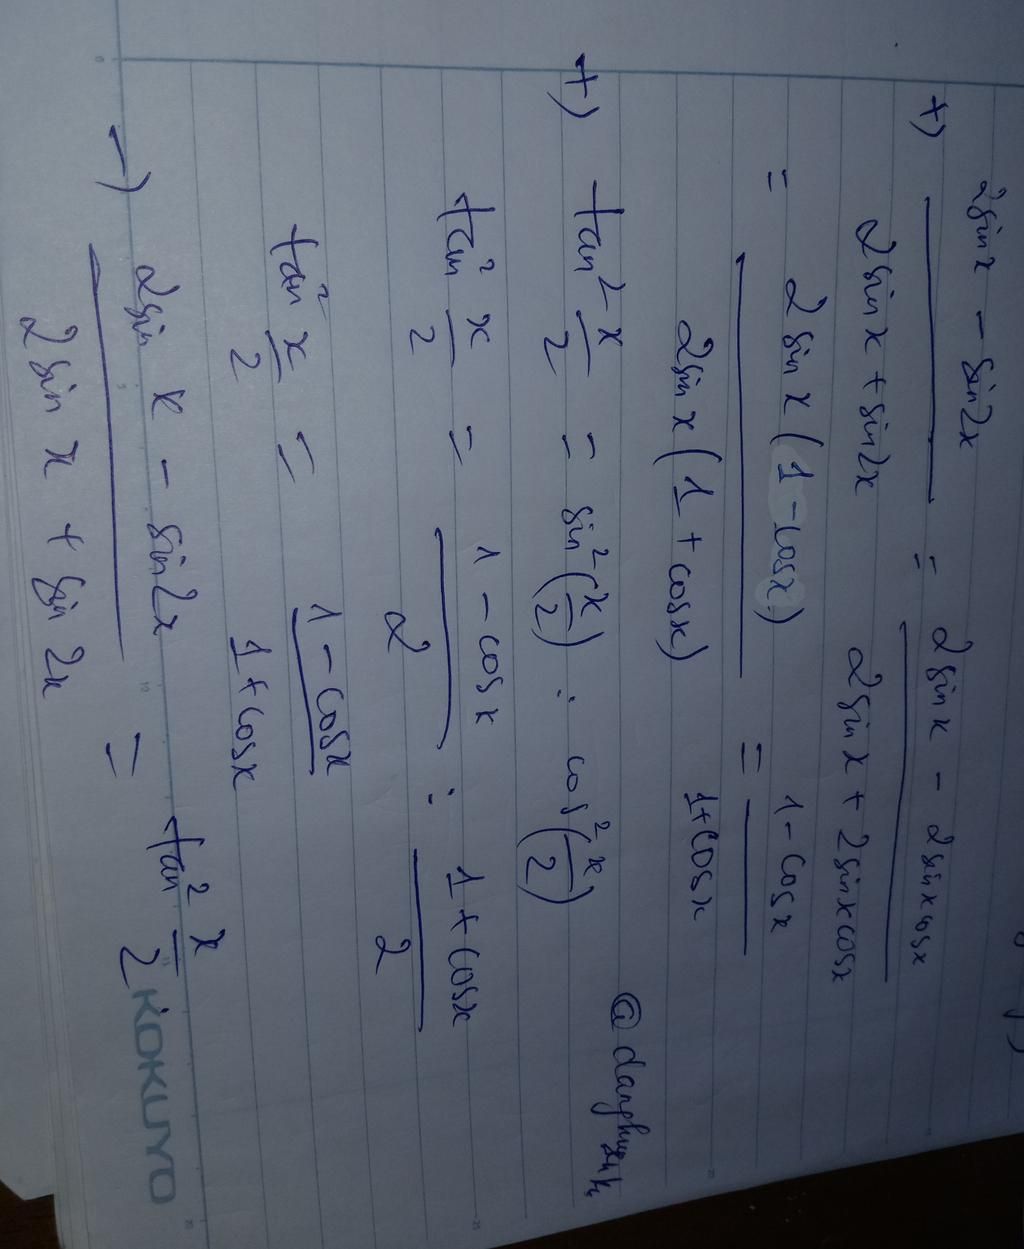 +) (2sin x - sin2x)/(2sin x + sin2x) = (2sin x - 2sinxcosx)/(2sin x + 2sinxcosx)
= (2 sin x (1 - cosx))/(2sin x (1 + cosx)) = (1 - cosx)/(1+cosx)
+) tan² x/2 = sin² (x/2) : cos² (x/2)
tan² x/2 = (1 - cosx)/2 : (1 + cosx)/2
tan² x/2 = (1 - cosx)/(1+cosx)
→) (2sin x - sin2x)/(2sin x + sin 2x) = tan² x/2
KOKUYO